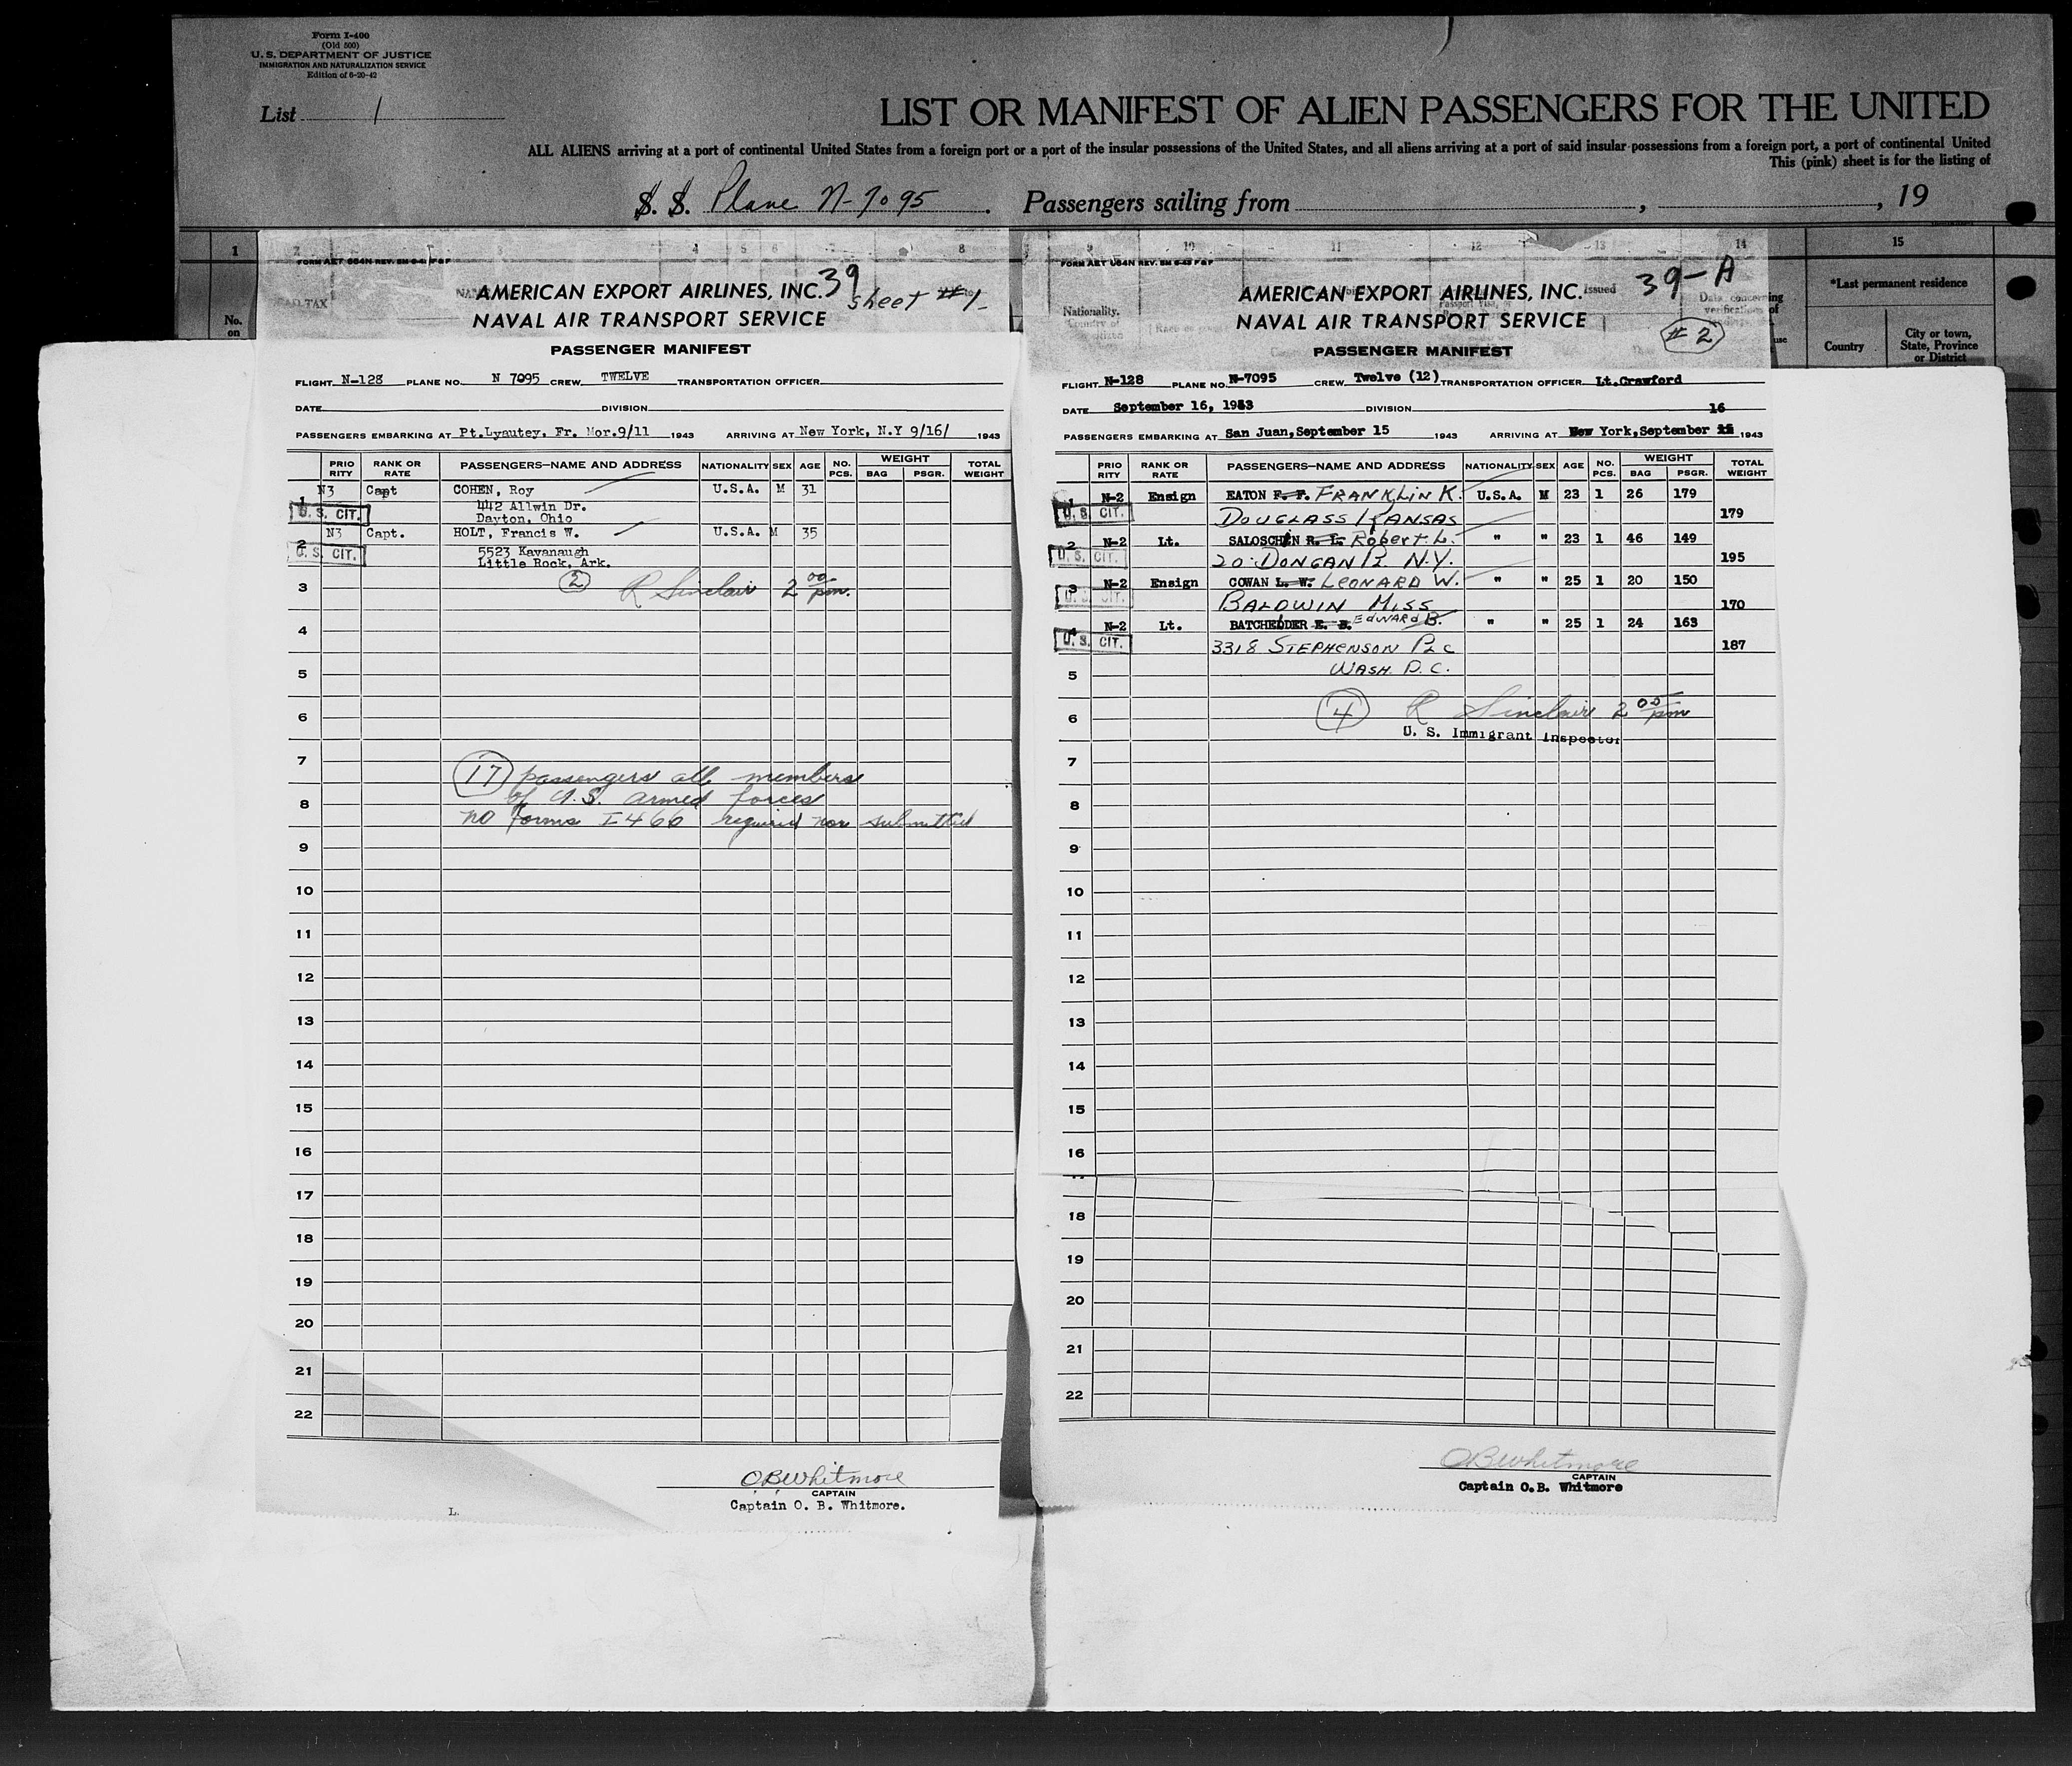 Form I-400
(Old 500)
U. S. DEPARTMENT OF JUSTICE
IMMIGRATION AND NATURALIZATION SERVICE
Edition of 6-20-42
List 1
LIST OR MANIFEST OF ALIEN PASSENGERS FOR THE UNITED
ALL ALIENS arriving at a port of continental United States from a foreign port or a port of the insular possessions of the United States, and all aliens arriving at a port of said insular possessions from a foreign port, a port of continental United
This (pink) sheet is for the listing of
S. S. Plane N-7095. Passengers sailing from , , 19
1 2 3 4 5 6 7 8 9 10 11 12 13 14 15
No.
on
Nationality.
Issued
Data concerning
verifications of
*Last permanent residence
Country
City or town,
State, Province
or District
39
Sheet #1-
AMERICAN EXPORT AIRLINES, INC.
NAVAL AIR TRANSPORT SERVICE
PASSENGER MANIFEST
FLIGHT N-128 PLANE NO. N 7095 CREW TWELVE TRANSPORTATION OFFICER
DATE DIVISION
PASSENGERS EMBARKING AT Pt.Lyautey, Fr. Mor.9/11 1943 ARRIVING AT New York, N.Y 9/16/ 1943
PRIO RITY RANK OR RATE PASSENGERS—NAME AND ADDRESS NATIONALITY SEX AGE NO. PCS. WEIGHT BAG PSGR. TOTAL WEIGHT
1 N3 Capt COHEN, Roy U.S.A. M 31
U. S. CIT. 442 Allwin Dr.
Dayton, Ohio
2 N3 Capt. HOLT, Francis W. U.S.A. M 35
U. S. CIT. 5523 Kavanaugh
Little Rock, Ark.
3 (2) R Sinclair 2 00 pm.
4
5
6
7 (17) passengers all members
8 of U.S. armed forces
no forms I466 required nor submitted
9
10
11
12
13
14
15
16
17
18
19
20
21
22
OBWhitmore
CAPTAIN
Captain O. B. Whitmore.
L.
39-A
AMERICAN EXPORT AIRLINES, INC.
NAVAL AIR TRANSPORT SERVICE
#2
PASSENGER MANIFEST
FLIGHT N-128 PLANE NO. N-7095 CREW Twelve (12) TRANSPORTATION OFFICER Lt.Crawford
DATE September 16, 1943 DIVISION 16
PASSENGERS EMBARKING AT San Juan,September 15 1943 ARRIVING AT New York,September 1943
PRIO RITY RANK OR RATE PASSENGERS—NAME AND ADDRESS NATIONALITY SEX AGE NO. PCS. WEIGHT BAG PSGR. TOTAL WEIGHT
1 N-2 Ensign EATON F. F. FRANKLIN K. U.S.A. M 23 1 26 179
U. S. CIT. DOUGLASS KANSAS 179
2 N-2 Lt. SALOSCHIN R. L. Robert L. " " 23 1 46 149
U. S. CIT. 20 DONGAN PL N.Y. 195
3 N-2 Ensign COWAN L. W. LEONARD W. " " 25 1 20 150
U. S. CIT. BALDWIN MISS 170
4 N-2 Lt. BATCHELDER E. B. EDWARD B. " " 25 1 24 163
U. S. CIT. 3318 STEPHENSON PLC 187
5 WASH. D.C.
6 (4) R Sinclair 2 00 pm
U. S. Immigrant Inspector
7
8
9
10
11
12
13
14
15
16
18
19
20
21
22
OBWhitmore
CAPTAIN
Captain O.B. Whitmore